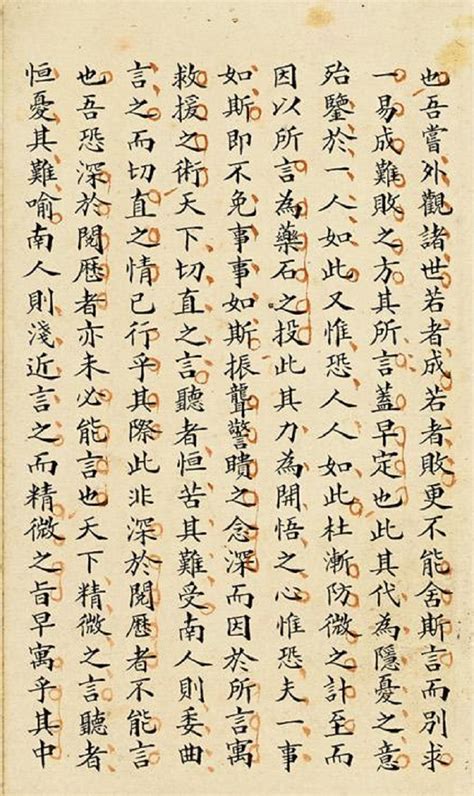 也吾嘗外觀諸世若者成若者敗更不能舍斯言而別求
一易成難敗之方其所言蓋早定也此其代為隱憂之意
殆鑒於一人如此又惟恐人人如此杜漸防微之計至而
因以所言為藥石之投此其力為開悟之心惟恐夫一事
如斯即不免事事如斯振聾警瞶之念深而因於所言寓
救援之術天下切直之言聽者恒苦其難受南人則委曲
言之而切直之情已行乎其際此非深於閱歷者不能言
也吾恐深於閱歷者亦未必能言也天下精微之言聽者
恒憂其難喻南人則淺近言之而精微之旨早寓乎其中